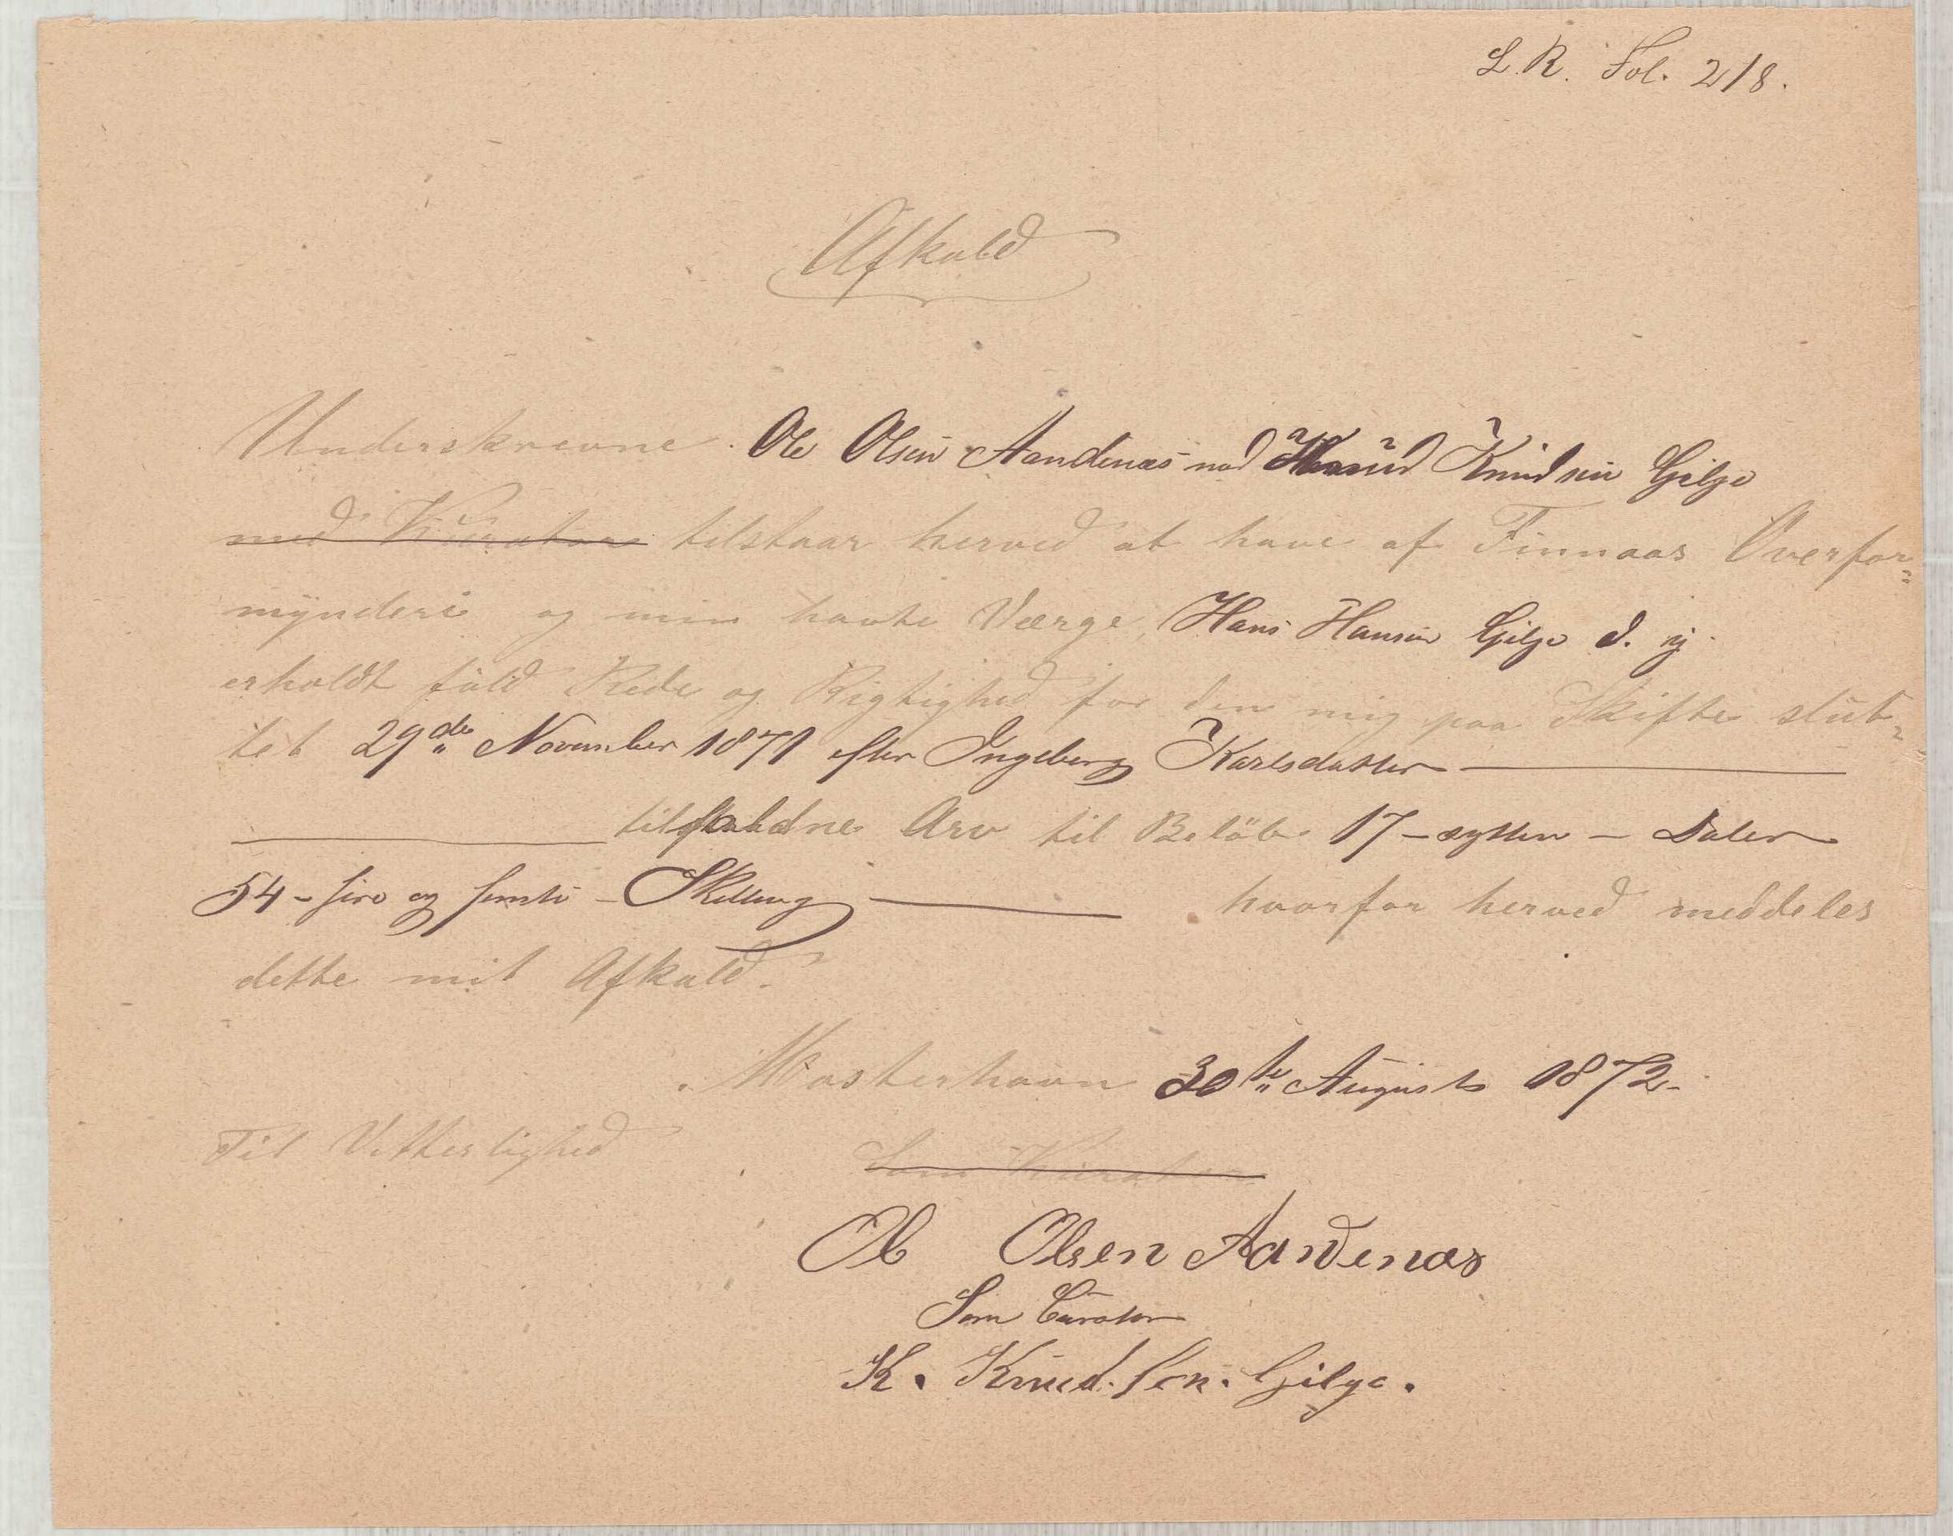 L. R. Fol. 218.
Afkald
Underskrevne Ole Olsen Aandenæs med Knud Knudsen Gilje
med Kurator tilstaar herved at have af Finnaas Overfor=
mynderi og min havte Værge, Hans Hansen Gilje d. y.
erholdt fuld Rede og Rigtighed for den mig paa Skifte slut=
tet 29de November 1871 efter Ingeborg Karlsdatter
tilfaldne Arv til Beløb 17 - sytten - Daler
54 - fire og femti - Skilling hvorfor herved meddeles
dette mit Afkald.
Mosterhavn 30te August 1872.
Til Vitterlighed
Som Kurator
Ole Olsen Aandenæs
Som Curator
K. Knud.sen. Gilje.